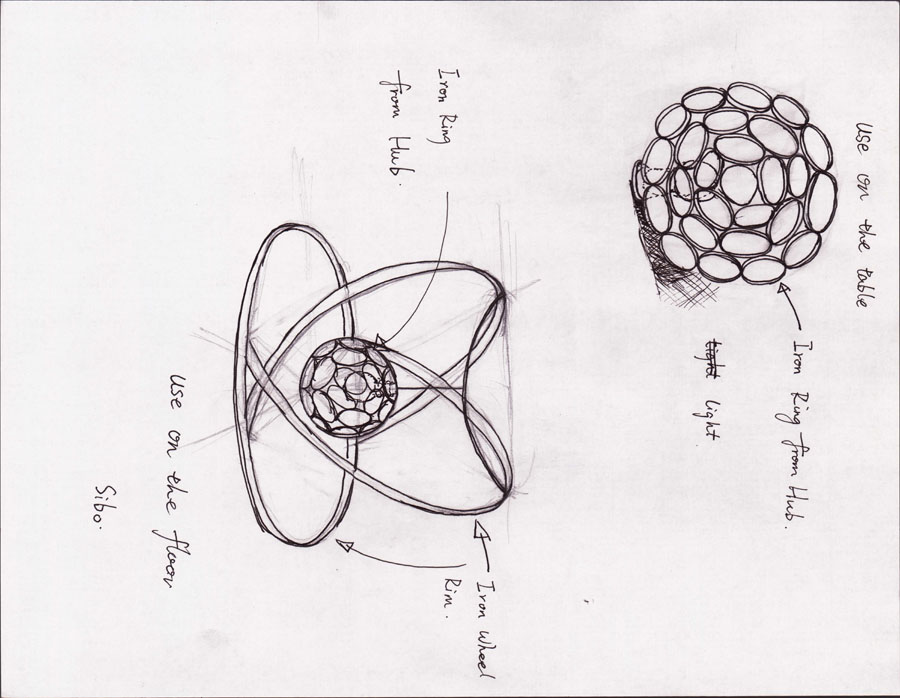 Use on the table
Iron Ring from Hub.
light.
Iron Ring
from Hub.
Iron Wheel
Rim.
Use on the floor
Sibo.